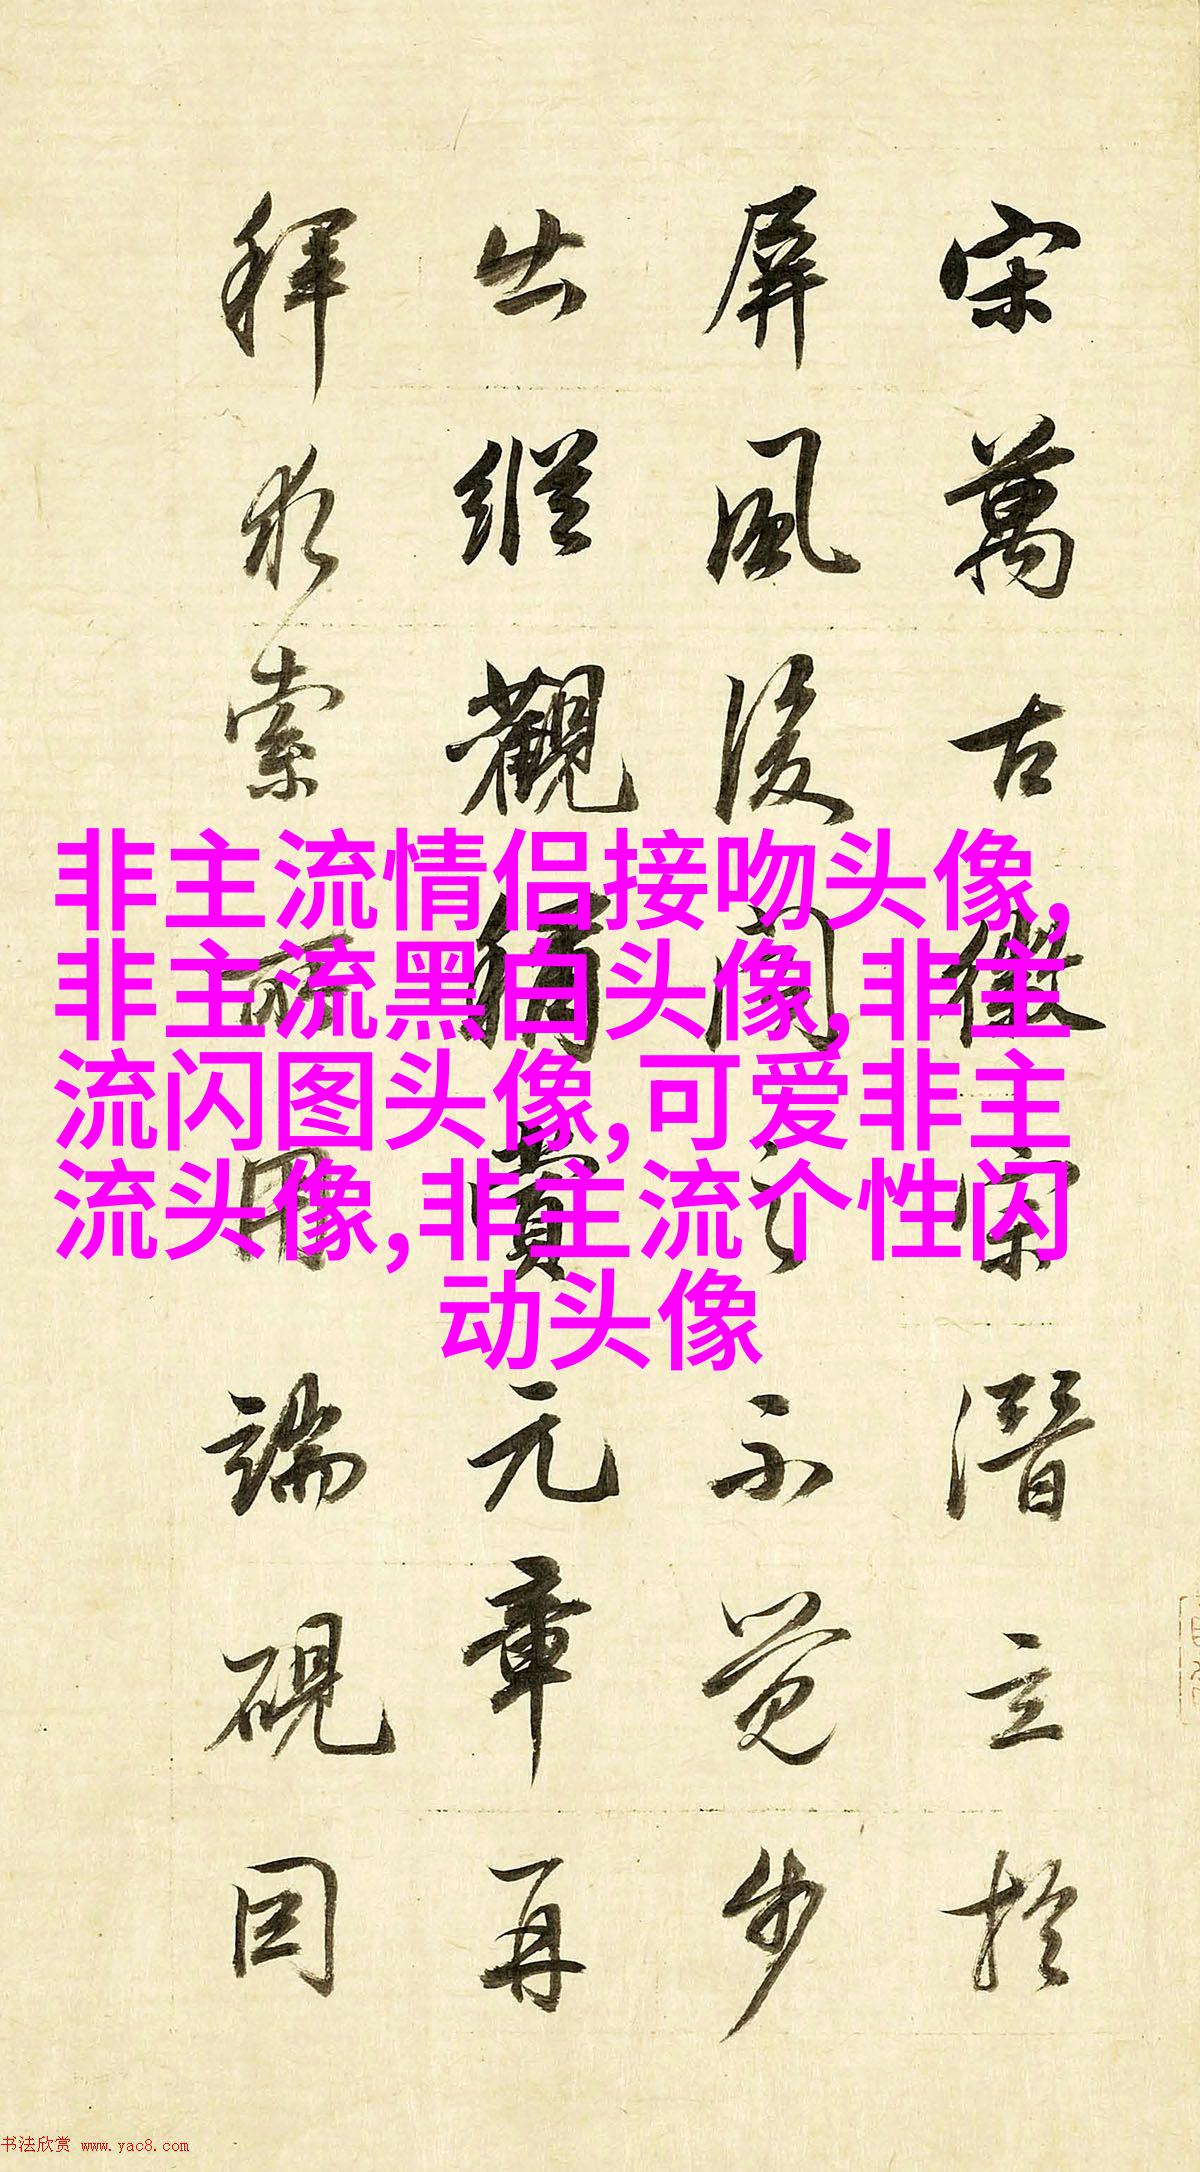 宋萬古徽宗潛立於
屏風後聞之不覺步
出縱觀稱賞元章再
拜求索所用端硯因
非主流情侣接吻头像,
非主流黑白头像,非主
流闪图头像,可爱非主
流头像,非主流个性闪
动头像
书法欣赏 www.yac8.com